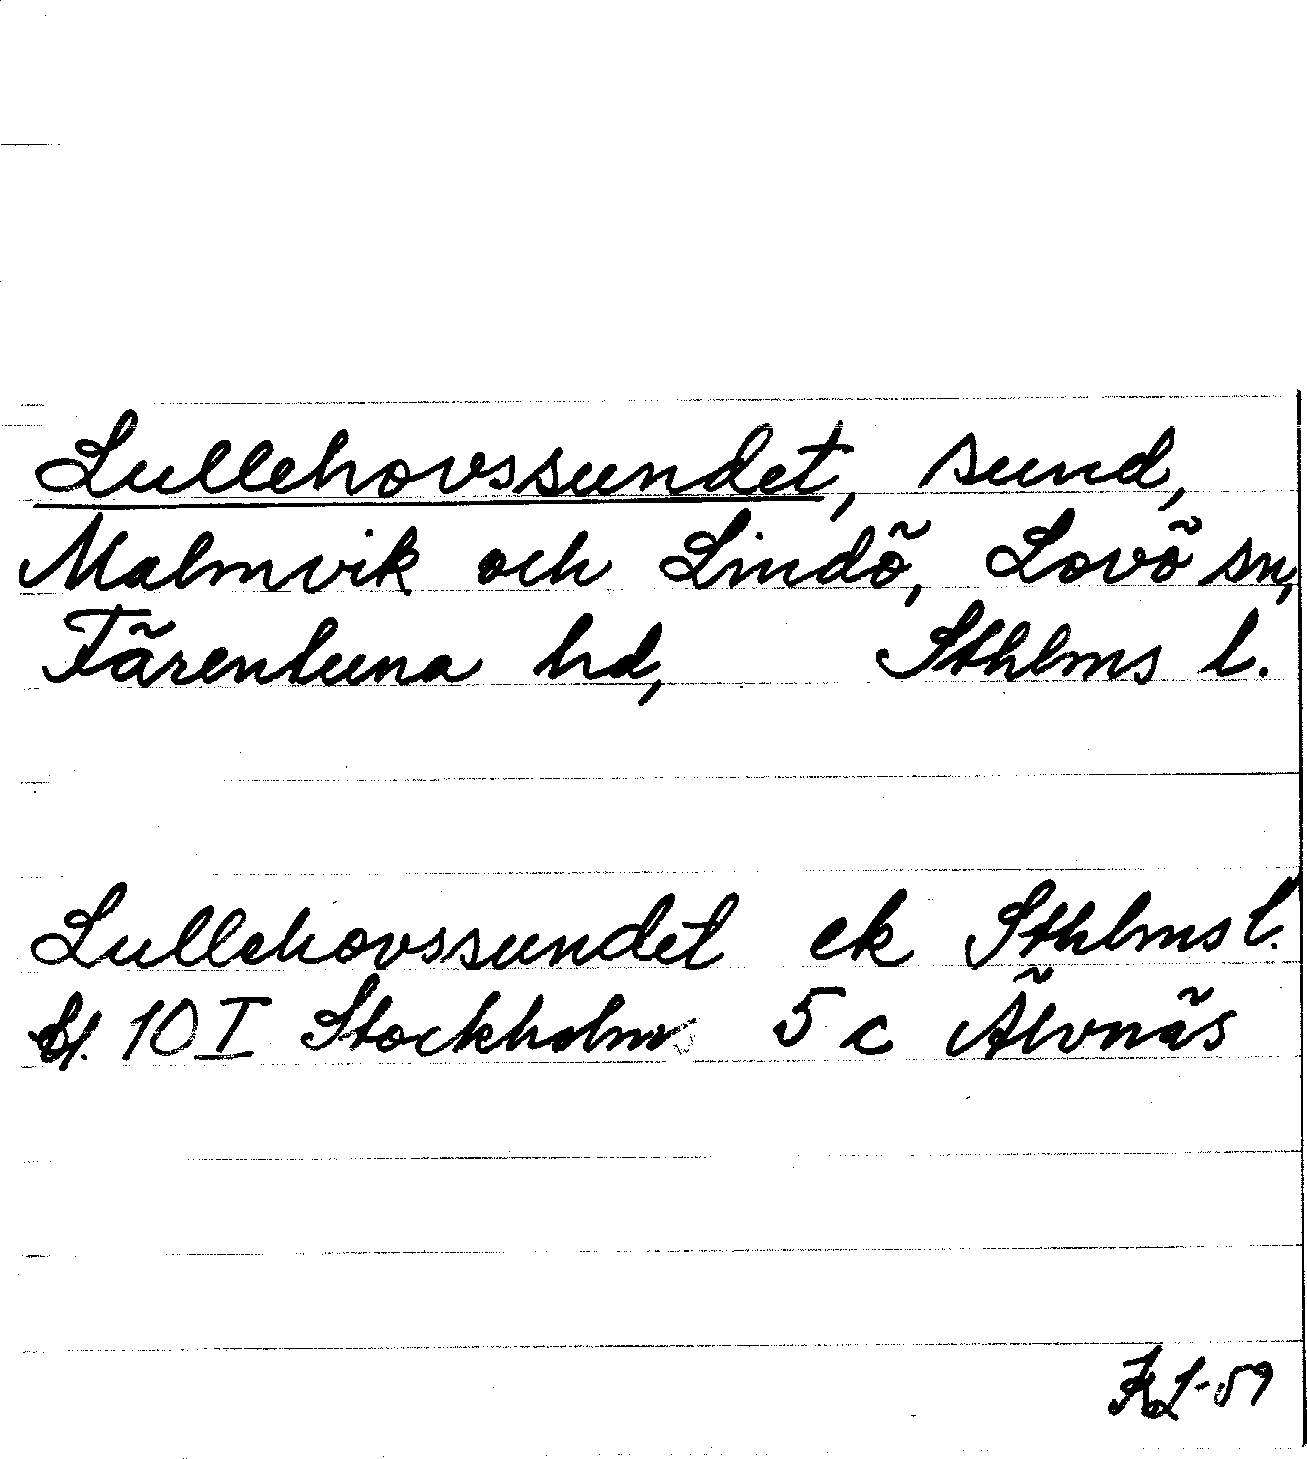 Lullehovssundet, sund,
Malmvik och Lindö, Lovö sn,
Färentuna hd, Sthlms l.
Lullehovssundet ek Sthlms l.
bl. 10 I Stockholm 5 c Älvnäs
KL-59